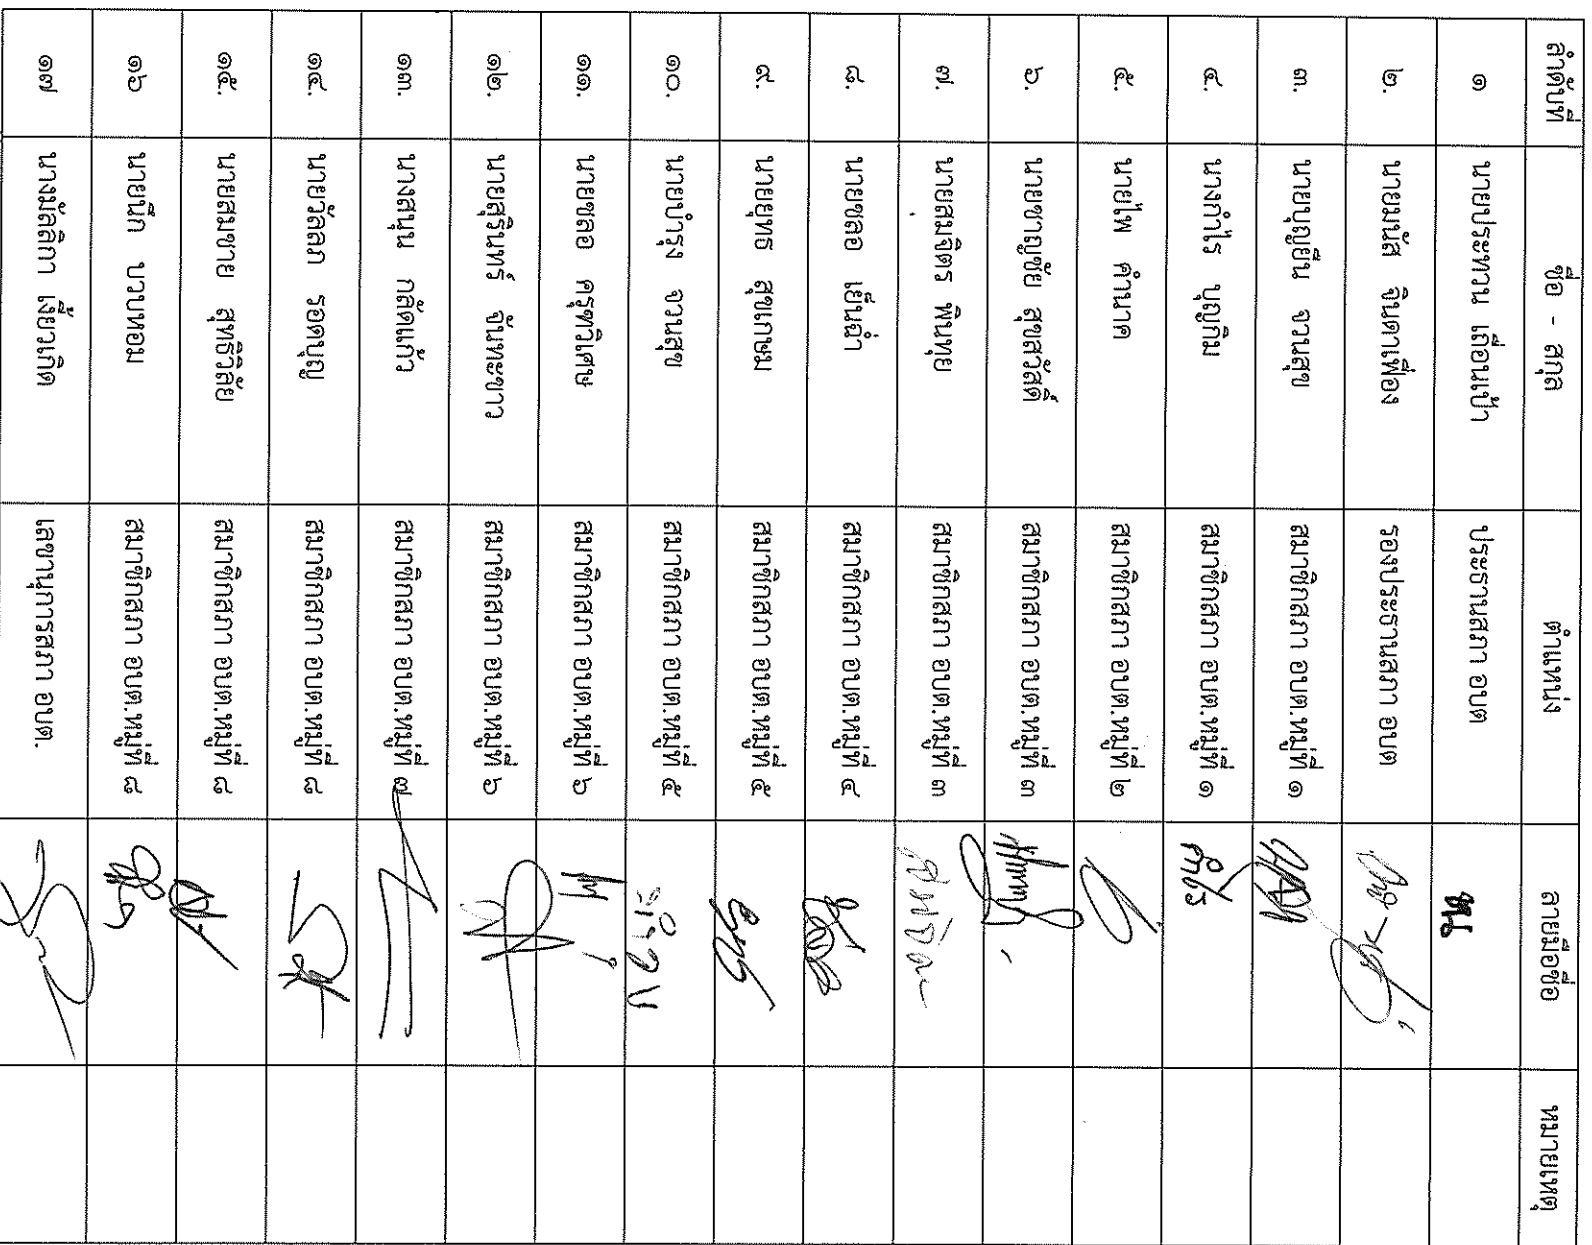 ลำดับที่ ชื่อ - สกุล ตำแหน่ง ลายมือชื่อ หมายเหตุ
๑ นายประทวน เถื่อนเป้า ประธานสภา อบต
๒. นายมนัส จินดาเฟื่อง รองประธานสภา อบต
๓. นายบุญยืน จวนสุข สมาชิกสภา อบต.หมู่ที่ ๑
๔. นางกำไร บุญกิม สมาชิกสภา อบต.หมู่ที่ ๑
๕. นายไพ คำนาค สมาชิกสภา อบต.หมู่ที่ ๒
๖. นายชาญชัย สุขสวัสดิ์ สมาชิกสภา อบต.หมู่ที่ ๓
๗. นายสมจิตร พินทุย สมาชิกสภา อบต.หมู่ที่ ๓
๘. นายชลอ เย็นฉ่ำ สมาชิกสภา อบต.หมู่ที่ ๔
๙. นายยุทธ สุขเกษม สมาชิกสภา อบต.หมู่ที่ ๕
๑๐. นายบำรุง จวนสุข สมาชิกสภา อบต.หมู่ที่ ๕
๑๑. นายชลอ ครุฑวิเศษ สมาชิกสภา อบต.หมู่ที่ ๖
๑๒. นายสุรินทร์ จันทะขาว สมาชิกสภา อบต.หมู่ที่ ๖
๑๓. นางสนุน กลัดแก้ว สมาชิกสภา อบต.หมู่ที่ ๗
๑๔. นายวัลลภ รอดบุญ สมาชิกสภา อบต.หมู่ที่ ๘
๑๕. นายสมชาย สุทธิวิลัย สมาชิกสภา อบต.หมู่ที่ ๘
๑๖ นายนึก บวบหอม สมาชิกสภา อบต.หมู่ที่ ๘
๑๗ นางมัลลิกา เงี้ยวเกิด เลขานุการสภา อบต.